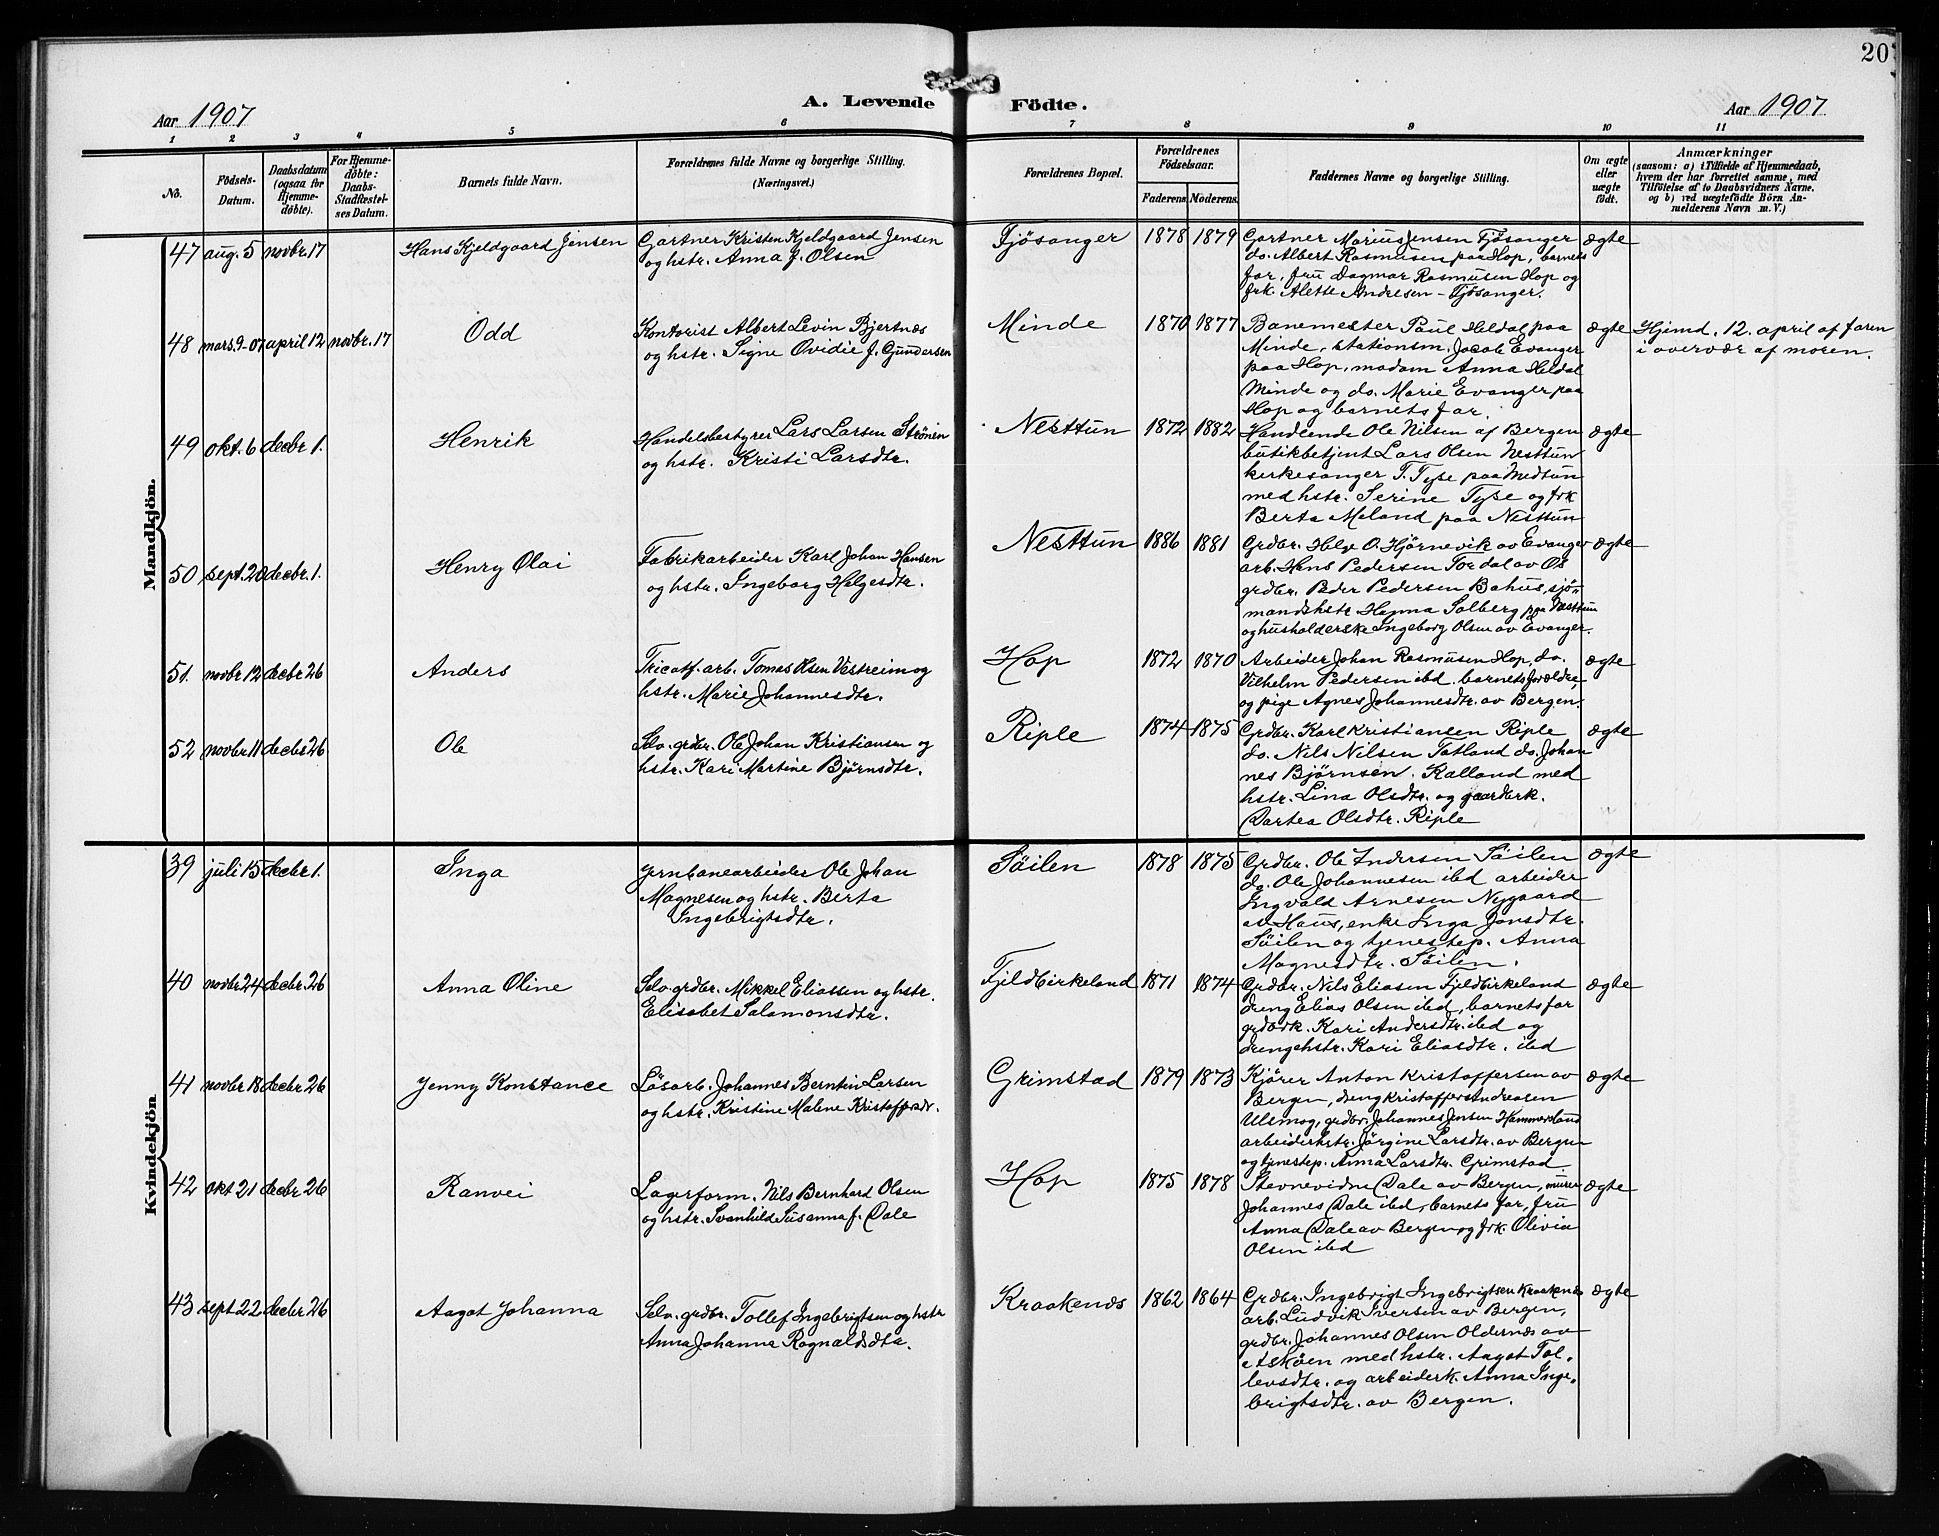 20
Aar 1907
A. Levende Födte.
Aar 1907
1 2 3 4 5 6 7 8 9 10 11
No.
Födsels-
Datum.
Daabsdatum
(ogsaa for
Hjemme-
döbte).
For Hjemme-
döbte:
Daabs-
Stadfæstel-
ses Datum.
Barnets fulde Navn.
Forældrenes fulde Navne og borgerlige Stilling.
(Næringsvei.)
Forældrenes Bopæl.
Forældrenes
Födselsaar.
Faderens. Moderens.
Faddernes Navne og borgerlige Stilling.
Om ægte
eller
uægte
födt.
Anmærkninger
(saasom: a) i Tilfælde af Hjemmedaab,
hvem der har forrettet samme, med
Tilföielse af to Daabsvidners Navne.
og b) ved uægtefödte Börn An-
melderens Navn m. V.)
Mandkjön.
47 aug. 5 novbr. 17 Hans Kjeldgaard Jensen
Gartner Kristen Kjeldgaard Jensen
og hstr. Anna f. Olsen
Fjösanger 1878 1879
Gartner Marius Jensen Fjösanger
do. Albert Rasmusen paa Hop, barnets
far, fru Dagmar Rasmusen Hop og
frk. Alette Andresen - Fjösanger.
ægte
48 mars. 9-07 april 12 novbr. 17 Odd
Kontorist Albert Levin Bjertnæs
og hstr. Signe Ovidie f. Gundersen
Minde 1870 1877
Banemester Paul Heldal paa
Minde, stationsm. Jacob Evanger
paa Hop, madam Anna Heldal
Minde og do. Marie Evanger paa
Hop og barnets far.
ægte
Hjemd. 12. april af faren
i overvær af moren.
49 okt. 6 decbr. 1. Henrik
Handelsbestyrer Lars Larsen Strönen
og hstr. Kristi Larsdtr.
Nesttun 1872 1882
Handlende Ole Nilsen af Bergen
butikbetjent Lars Olsen Nesttun
kirkesanger T. Tyse paa Midtun
med hstr. Serine Tyse og frk
Berta Meland paa Nesttun
ægte
50 sept. 20 decbr. 1. Henry Olai
Fabrikarbeider Karl Johan Hansen
og hstr. Ingeborg Helgesdtr.
Nesttun 1886 1881
Grdbr. Helge O. Hjörnevik av Evanger
arb. Hans Pedersen Tordal av Os
grdbr. Peder Pedersen Bahus, sjö-
mandshstr. Hanna Solberg paa Næsttun
og husholderske Ingeborg Olsen av Evanger.
ægte
51. novbr 12 decbr 26 Anders
Tricotf. arb. Tomas Olsen Vestreim og
hstr. Marie Johannesdtr.
Hop 1872 1870
Arbeider Johan Rasmusen Hop, do.
Vilhelm Pedersen ibd. barnets forældre,
og pige Agnes Johannesdtr. av Bergen.
ægte
52 novbr 11 decbr 26 Ole
Selv. grdbr. Ole Johan Kristiansen og
hstr. Kari Martine Björnsdtr.
Riple 1874 1875
Grdbr. Karl Kristiansen Riple
do. Nils Nilsen Tatland do. Johan
nes Björnsen. Kalland med
hstr. Lina Olsdtr. og gaardbrk.
Dartea Olsdtr. Riple
ægte
Kvindekjön
39 juli 15 decbr 1. Inga
Jernbanearbeider Ole Johan
Magnesen og hstr. Berta
Ingebrigtsdtr.
Söilen 1878 1875
Grdbr. Ole Andersen Söilen
do. Ole Johannesen ibd arbeider
Ingvald Arnesen Nygaard
av Haus, enke Inga Jonsdtr.
Söilen og tjenestep. Anna
Magnesdtr. Söilen.
ægte
40 novbr. 24 decbr. 26 Anna Oline
Selv. grdbr. Mikkel Eliassen og hstr.
Elisabet Salamonsdtr.
Fjeldbirkeland 1871 1874
Grdbr. Nils Eliasen Fjeldbirkeland
dreng Elias Olsen ibd, barnets far
grdbrk. Kari Andersdtr. ibd og
drengehstr. Kari Eliasdtr. ibd
ægte
41 novbr 18 decbr 26 Jenny Konstance
Lösarb. Johannes Berntin Larsen
og hstr. Kristine Malene Kristoffersdr.
Grimstad 1879 1873
Kjörer Anton Kristoffersen av
Bergen, dreng Kristoffer Andreasen
Ulsmog, grdbr. Johannes Jensen Hammersland
arbeiderhstr. Jörgine Larsdtr. av Bergen
og tjenestep. Anna Larsdtr. Grimstad
ægte
42 okt 21 decbr 26 Ranvei
Lagerform. Nils Bernhard Olsen
og hstr. Svanhild Susanna f. Dale
Hop 1875 1878
Stevnevidne Dale av Bergen, murer
Johannes Dale ibd, barnets far, fru
Anna Dale av Bergen og frk. Olivia
Olsen ibd
ægte
43 sept 22 decbr 26 Aagot Johanna
Selv. grdbr. Tollef Ingebrigtsen og hstr
Anna Johanna Ragnaldsdtr.
Kraakenæs 1862 1864
Grdbr. Ingebrigt Ingebrigtsen Kraakenæs
arb. Ludvik Iversen av Bergen,
grdbr. Johannes Olsen Oldernæs av
Asköen med hstr. Aagot Tol-
levsdtr. og arbeiderk. Anna Inge-
brigtsdtr. av Bergen.
ægte